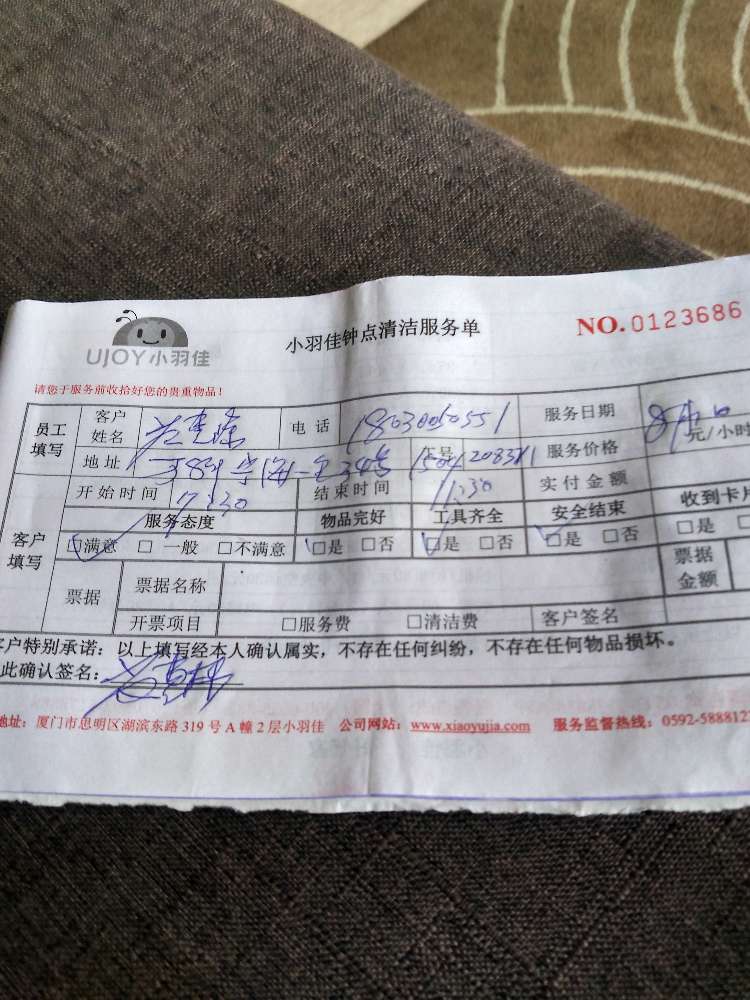 UJOY小羽佳
小羽佳钟点清洁服务单
NO.0123686
请您于服务前收拾好您的贵重物品！
员工填写 客户姓名 电话 18030060551 服务日期
地址 卡号 服务价格 元/小时
客户填写 开始时间 结束时间 11:30 实付金额
服务态度 物品完好 工具齐全 安全结束 收到卡片
□满意 □一般 □不满意 □是 □否 □是 □否 □是 □否 □是
票据 票据名称 票据金额
开票项目 □服务费 □清洁费 客户签名
客户特别承诺：以上填写经本人确认属实，不存在任何纠纷，不存在任何物品损坏。
此确认签名：
地址：厦门市思明区湖滨东路 319 号 A 幢 2 层小羽佳 公司网站：www.xiaoyujia.com 服务监督热线：0592-588812